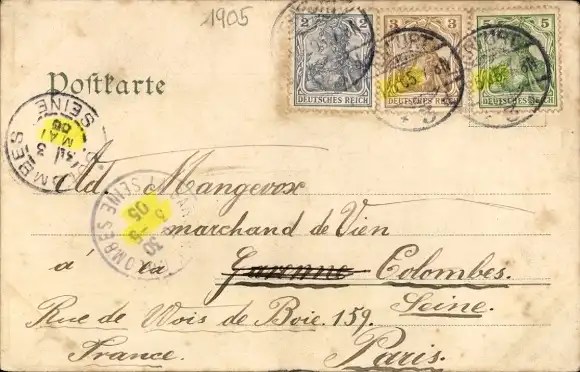 1905
2 2 3 3 5 5
DEUTSCHES REICH DEUTSCHES REICH DEUTSCHES REICH
Postkarte
SEINE
3
MAI
Ad. Mangevox
marchand de Vien
à La Garenne Colombes.
Seine.
Rue de Wois de Boie. 159.
France. Paris.
COLOMBES SEINE
05